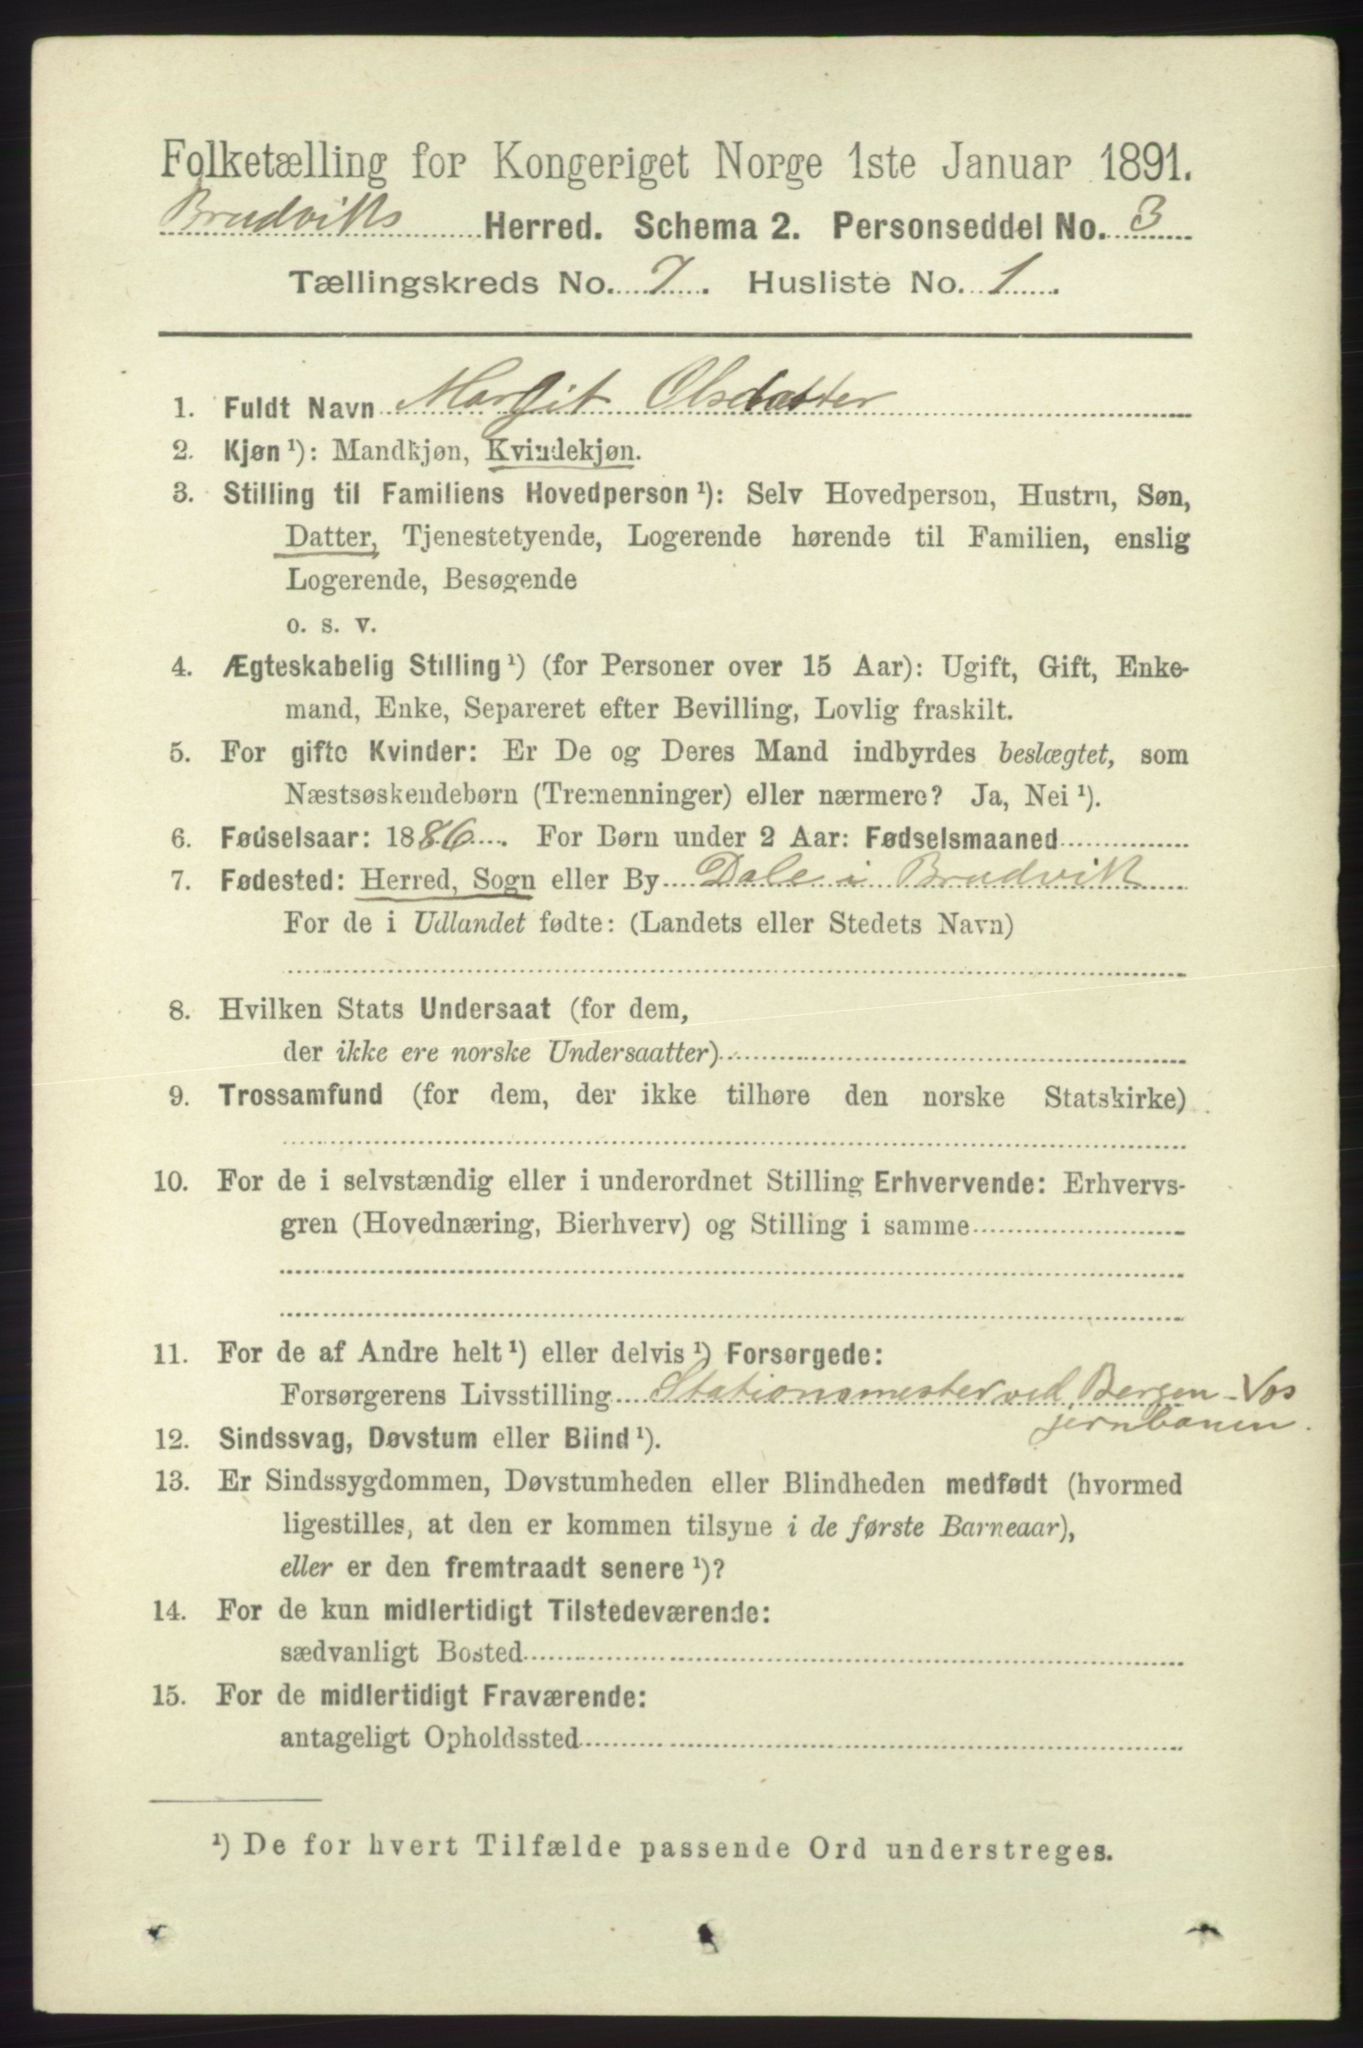 Folketælling for Kongeriget Norge 1ste Januar 1891.
Brudviks Herred. Schema 2. Personseddel No. 3
Tællingskreds No. 7. Husliste No. 1.
1. Fuldt Navn Margit Olsdatter
2. Kjøn¹): Mandkjøn, Kvindekjøn.
3. Stilling til Familiens Hovedperson¹): Selv Hovedperson, Hustru, Søn,
Datter, Tjenestetyende, Logerende hørende til Familien, enslig
Logerende, Besøgende
o. s. v.
4. Ægteskabelig Stilling¹) (for Personer over 15 Aar): Ugift, Gift, Enke-
mand, Enke, Separeret efter Bevilling, Lovlig fraskilt.
5. For gifte Kvinder: Er De og Deres Mand indbyrdes beslægtet, som
Næstsøskendebørn (Tremenninger) eller nærmere? Ja, Nei¹).
6. Fødselsaar: 1886. For Børn under 2 Aar: Fødselsmaaned
7. Fødested: Herred, Sogn eller By Dale i Brudvik
For de i Udlandet fødte: (Landets eller Stedets Navn)
8. Hvilken Stats Undersaat (for dem,
der ikke ere norske Undersaatter)
9. Trossamfund (for dem, der ikke tilhøre den norske Statskirke)
10. For de i selvstændig eller i underordnet Stilling Erhvervende: Erhvervs-
gren (Hovednæring, Bierhverv) og Stilling i samme
11. For de af Andre helt¹) eller delvis¹) Forsørgede:
Forsørgerens Livsstilling Stationsmester ved Bergen-Vos
jernbanen.
12. Sindssvag, Døvstum eller Blind¹).
13. Er Sindssygdommen, Døvstumheden eller Blindheden medfødt (hvormed
ligestilles, at den er kommen tilsyne i de første Barneaar),
eller er den fremtraadt senere¹)?
14. For de kun midlertidigt Tilstedeværende:
sædvanligt Bosted
15. For de midlertidigt Fraværende:
antageligt Opholdssted
¹) De for hvert Tilfælde passende Ord understreges.